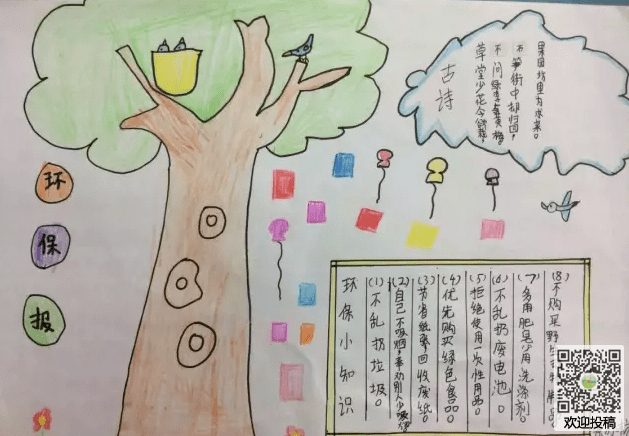 环
保
报
古诗
草堂少花今欲栽，
不问绿李与黄梅。
不笋街中却归回，
果园坊里为求来。
环保小知识
(1)不乱扔垃圾。
(2)自己不吸烟，奉劝别人少吸烟
(3)节省纸张，回收废纸。
(4)优先购买绿色食品。
(5)拒绝使用一次性用品。
(6)不乱扔废电池。
(7)多用肥皂少用洗涤剂。
(8)不购买野生
品。
欢迎投稿